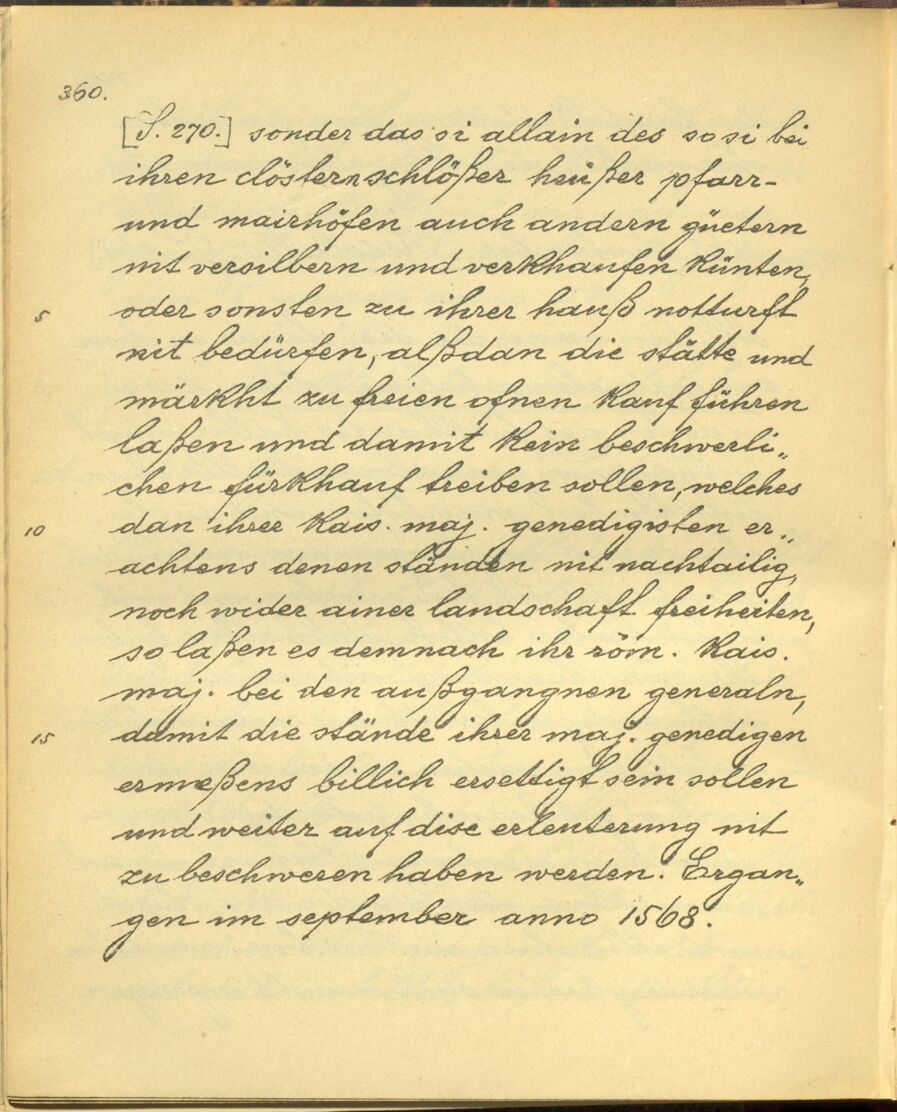 360.
[S. 270.] sonder das si allain des so si bei
ihren clöstern schlößer heüßer pfarr-
und mairhöfen auch andern güetern
nit versilbern und verkhaufen künten,
5 oder sonsten zu ihrer hauß notturft
nit bedürfen, alßdan die stätte und
märkht zu freien ofnen kauf führen
laßen und damit kein beschwerli„
chen fürkhauf treiben sollen, welches
10 dan ihrer kais. maj. genedigisten er„
achtens denen ständen nit nachtailig,
noch wider ainer landschaft freiheiten,
so laßen es demnach ihr röm. kais.
maj. bei den außgangnen generaln,
15 damit die stände ihrer maj. genedigen
ermeßens billich ersettigt sein sollen
und weiter auf dise erleuterung nit
zu beschweren haben werden. Ergan„
gen im september anno 1568.